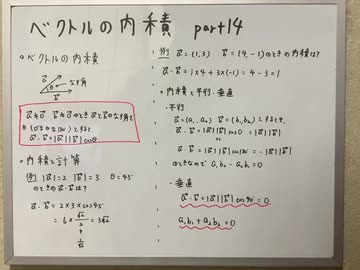 ベクトルの内積 part14
◦ベクトルの内積
a→ θ なす角
b→
a→≠0→ b→≠0→のとき a→とb→のなす角を
θ (0°≦θ≦180°)とすると、
a→・b→=|a→||b→|cosθ
◦内積と計算
例 |a→|=2 |b→|=3 θ=45°
のときのa→・b→は?
a→・b→ = 2×3×cos45°
= 6×√2/2 = 3√2
1/√2
例 a→=(1,3) b→=(4,-1)のときの内積は?
a→・b→=1×4+3×(-1)=4-3=1
◦内積と平行・垂直
・平行
a→=(a₁,a₂) b→=(b₁,b₂)とするとき、
a→・b→=|a→||b→|cos0°=|a→||b→|
a→・b→=|a→||b→|cos180°=-|a→||b→|
のときなので a₁b₂-a₂b₁=0
・垂直
a→・b→=|a→||b→|cos90°=0
a₁b₁+a₂b₂=0